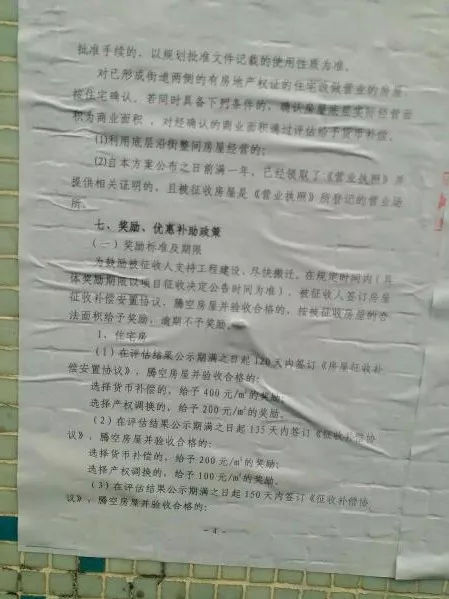 批准手续的，以规划批准文件记载的使用性质为准。
对已形成街道两侧的有房地产权证的住宅改做营业的房屋
按住宅确认。若同时具备下列条件的，确认房屋底层实际经营面
积为商业面积，对经确认的商业面积通过评估给予货币补偿。
(1)利用底层沿街整间房屋经营的；
(2)自本方案公布之日前满一年，已经领取了《营业执照》并
提供相关证明的，且被征收房屋是《营业执照》所登记的营业场
所。
七、奖励、优惠补助政策
（一）奖励标准及期限
为鼓励被征收人支持工程建设、尽快搬迁。在规定时间内（具
体奖励期限以项目征收决定公告时间为准），被征收人签订房屋
征收补偿安置协议、腾空房屋并验收合格的，按被征收房屋的合
法面积给予奖励，逾期不予奖励。
1、住宅房
(1)在评估结果公示期满之日起120天内签订《房屋征收补
偿安置协议》，腾空房屋并验收合格的：
选择货币补偿的，给予400元/m²的奖励；
选择产权调换的，给予200元/m²的奖励。
(2)在评估结果公示期满之日起135天内签订《征收补偿协
议》，腾空房屋并验收合格的：
选择货币补偿的，给予200元/m²的奖励；
选择产权调换的，给予100元/m²的奖励。
(3)在评估结果公示期满之日起150天内签订《征收补偿协
议》，腾空房屋并验收合格的：
- 4 -